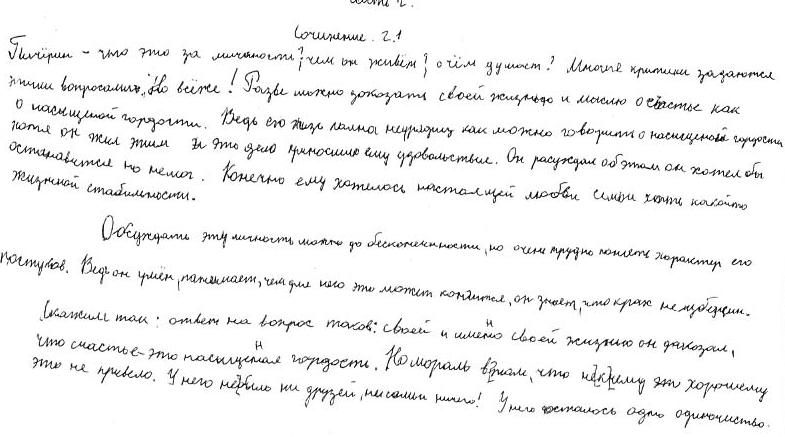 Часть 2.
Сочинение. 2.1
Печёрин – что это за личность? чем он живёт? о чём думает? Многие критики задаются
этими вопросами. Но всёже! Разве можно доказать своей жизнью и мыслю о счастье как
о насыщеной гордости. Ведь его жизь полна неурядиц как можно говорить о насыщеной гордости
хотя он жил этим и это дело приносило ему удовольствие. Он расуждал об этом он хотел бы
остановится но немог. Конечно ему хотелось настаящей любви семьи хоть какойто
жизненой стабильности.
Обсуждать эту личность можно до бесконечности, но очень трудно понять характер его
поступков. Ведь он умён, понимает, чем для него это может кончится, он знает, что крах неизбежен.
Скажим так: ответ на вопрос таков: своей и именно своей жизнью он даказал,
что счастье – это насыщенная гордость. Но мораль в том, что ни к чему эт хорошему
это не привело. У него небыло ни друзей, ни семьи ничего! У него осталось одно одиночиство.